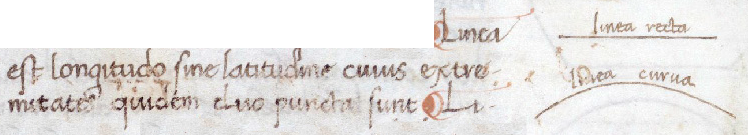 Linea
linea recta
est longitudo sine latitudine cuius extre-
linea curua
mitates quidem duo puncta sunt Li-